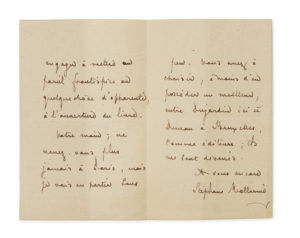 engager à mettre un
pareil frontispice ou
quelque chose d'apparenté,
à l'ouverture du livre.
Votre main ; ne
venez-vous plus
jamais à Paris, mais
je vais en partir sous
peu. Vous avez à
choisir, à moins d'en
posséder un meilleur,
entre Dujardin ici et
Deman à Bruxelles,
comme éditeurs ; ils
me sont dévoués
A vous encore
Stéphane Mallarmé